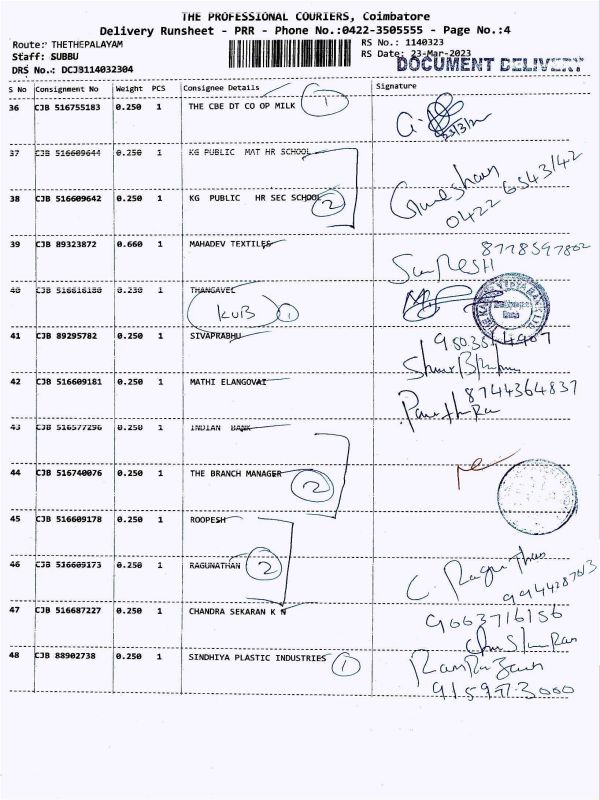 THE PROFESSIONAL COURIERS, Coimbatore
Delivery Runsheet - PRR - Phone No.:0422-3505555 - Page No.:4
Route: THETHEPALAYAM
RS No.: 1140323
Staff: SUBBU
RS Date: 23-Mar-2023
DRS No.: DCJB114032304
DOCUMENT DELIVERY
S No Consignment No Weight PCS Consignee Details Signature
36 CJB 516755183 0.250 1 THE CBE DT CO OP MILK 1
37 CJB 516609644 0.250 1 KG PUBLIC MAT HR SCHOOL
38 CJB 516609642 0.250 1 KG PUBLIC HR SEC SCHOOL 2
Ganeshan
0422 6543142
39 CJB 89323872 0.660 1 MAHADEV TEXTILES
8778597802
SURESH
40 CJB 516616180 0.230 1 THANGAVEL
KVB 1
41 CJB 89295782 0.250 1 SIVAPRABHU
42 CJB 516609181 0.250 1 MATHI ELANGOVAI
8744364837
43 CJB 516577296 0.250 1 INDIAN BANK
44 CJB 516740076 0.250 1 THE BRANCH MANAGER 2
45 CJB 516609178 0.250 1 ROOPESH
46 CJB 516609173 0.250 1 RAGUNATHAN 2
C. Ragunathan
47 CJB 516687227 0.250 1 CHANDRA SEKARAN K N
9663716156
48 CJB 88902738 0.250 1 SINDHIYA PLASTIC INDUSTRIES 1